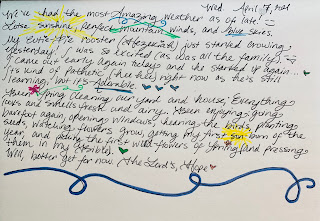 Wed. April 17, 2021
We've had the most Amazing weather as of late!
Lotsa sunshine, perfect mountain winds, and blue skies.
My little rooster (Hezekiah) just started crowing
yesterday! I was so excited (as was all the family).
I came out early again today and he started up again...
it's kind of pathetic (hee hee) right now as he's still
learning, but it's Adorable.
Spring cleaning our yard and house; Everything
looks and smells fresh and airy. Been enjoying going
barefoot again, opening windows, hearing the birds, planting
seeds, watching flowers grow, getting my first sun burn of the
year, and picking the first wild flowers of Spring and pressing
them in my Bible.
Well, better get for now. The Lord's, Hope